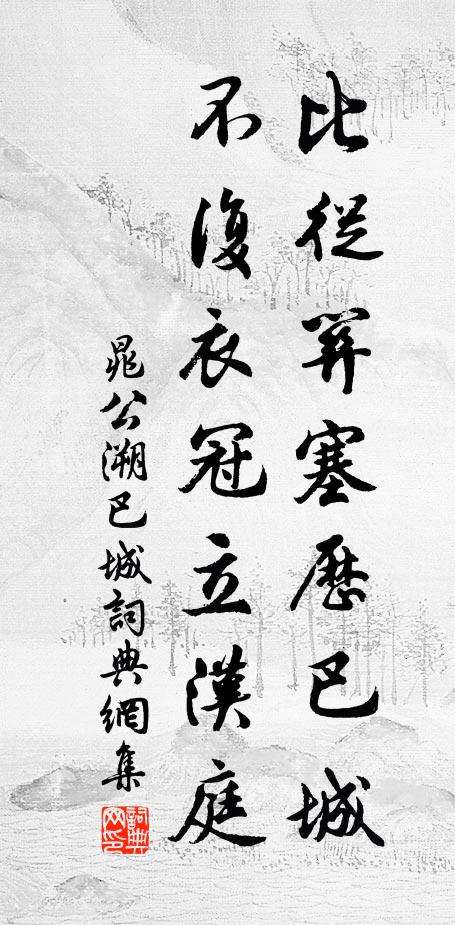 比從塞歷巴城
不復衣冠立漢庭
晁公溯巴城詞典網集
詞典網印